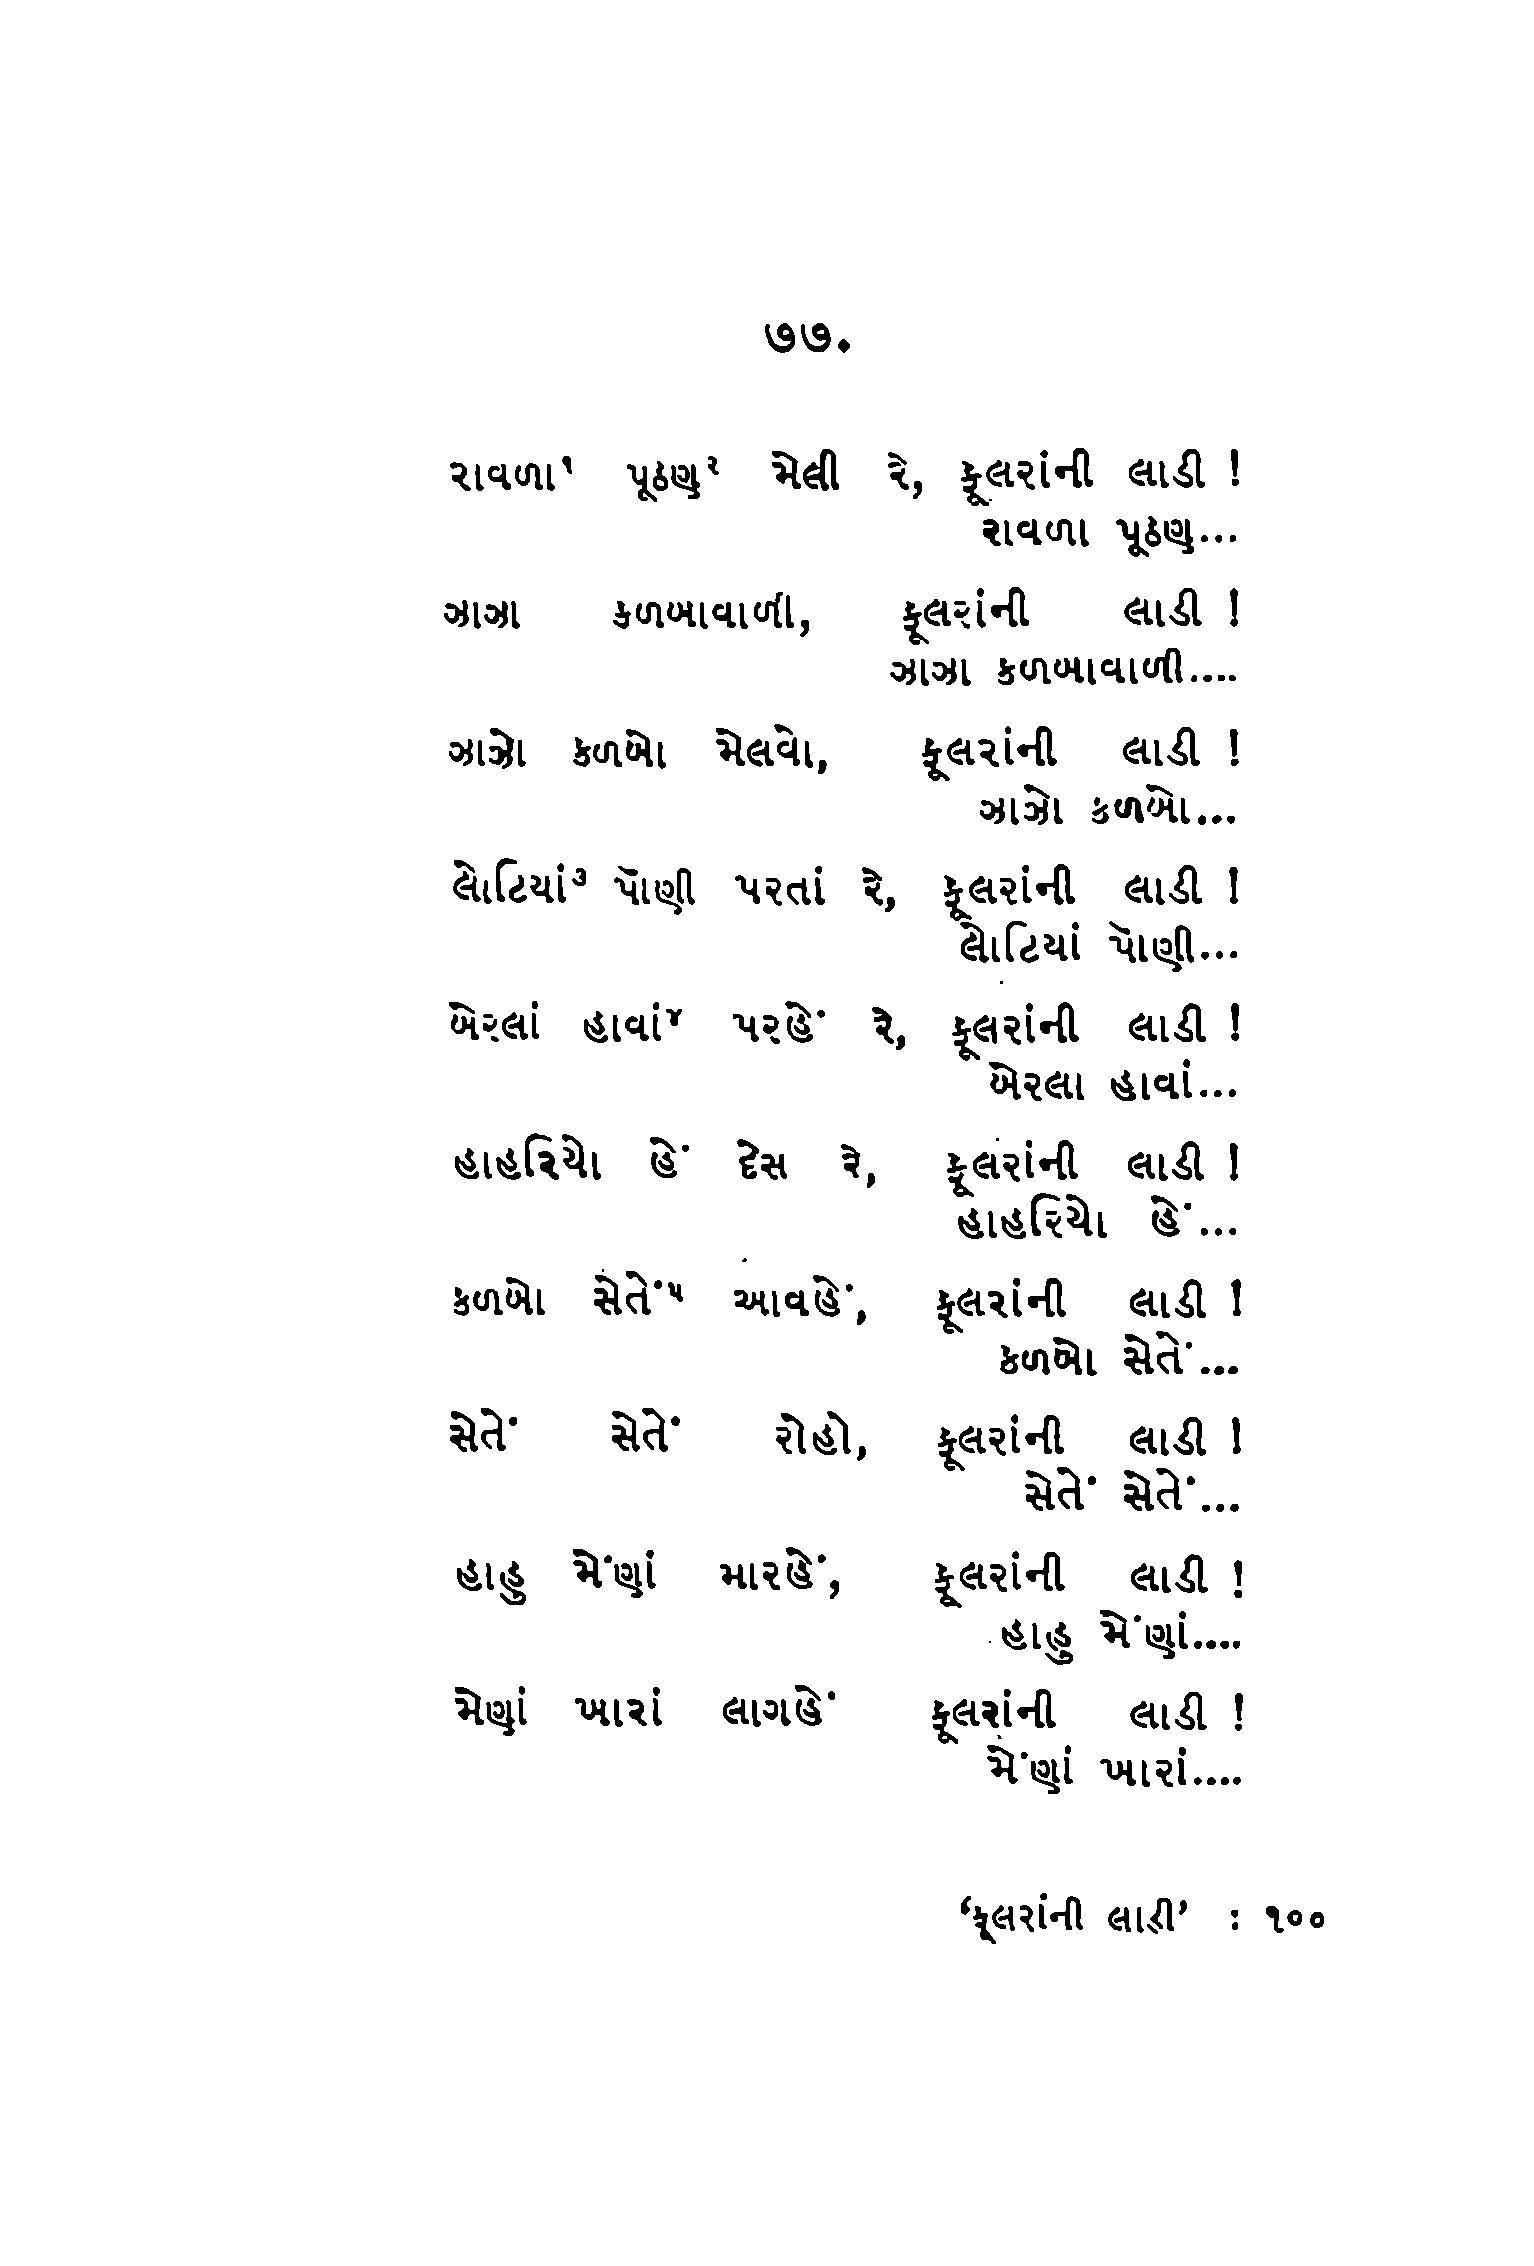 ૭૭.
રાવળા૧ પૂઠણુ૨ મેલી રે, ફૂલરાંની લાડી !
રાવળા પૂઠણુ...
ઝાઝા કળબાવાળી, ફૂલરાંની લાડી !
ઝાઝા કળબાવાળી....
ઝાઝો કળબો મેલવો, ફૂલરાંની લાડી !
ઝાઝો કળબો...
લોટિયાં૩ પૉણી પરતાં રે, ફૂલરાંની લાડી !
લોટિયાં પૉણી...
બેરલાં હાવાં૪ પરહેં રે, ફૂલરાંની લાડી !
બેરલા હાવાં...
હાહરિયો હેં દેસ રે, ફૂલરાંની લાડી !
હાહરિયો હેં...
કળબો સેતેં૫ આવહેં, ફૂલરાંની લાડી !
કળબો સેતેં...
સેતેં સેતેં રોહો, ફૂલરાંની લાડી !
સેતેં સેતેં...
હાહુ મેંણાં મારહેં, ફૂલરાંની લાડી !
હાહુ મેંણાં....
મેણાં ખારાં લાગહેં ફૂલરાંની લાડી !
મેંણાં ખારાં....
‘ફૂલરાંની લાડી’ : ૧૦૦